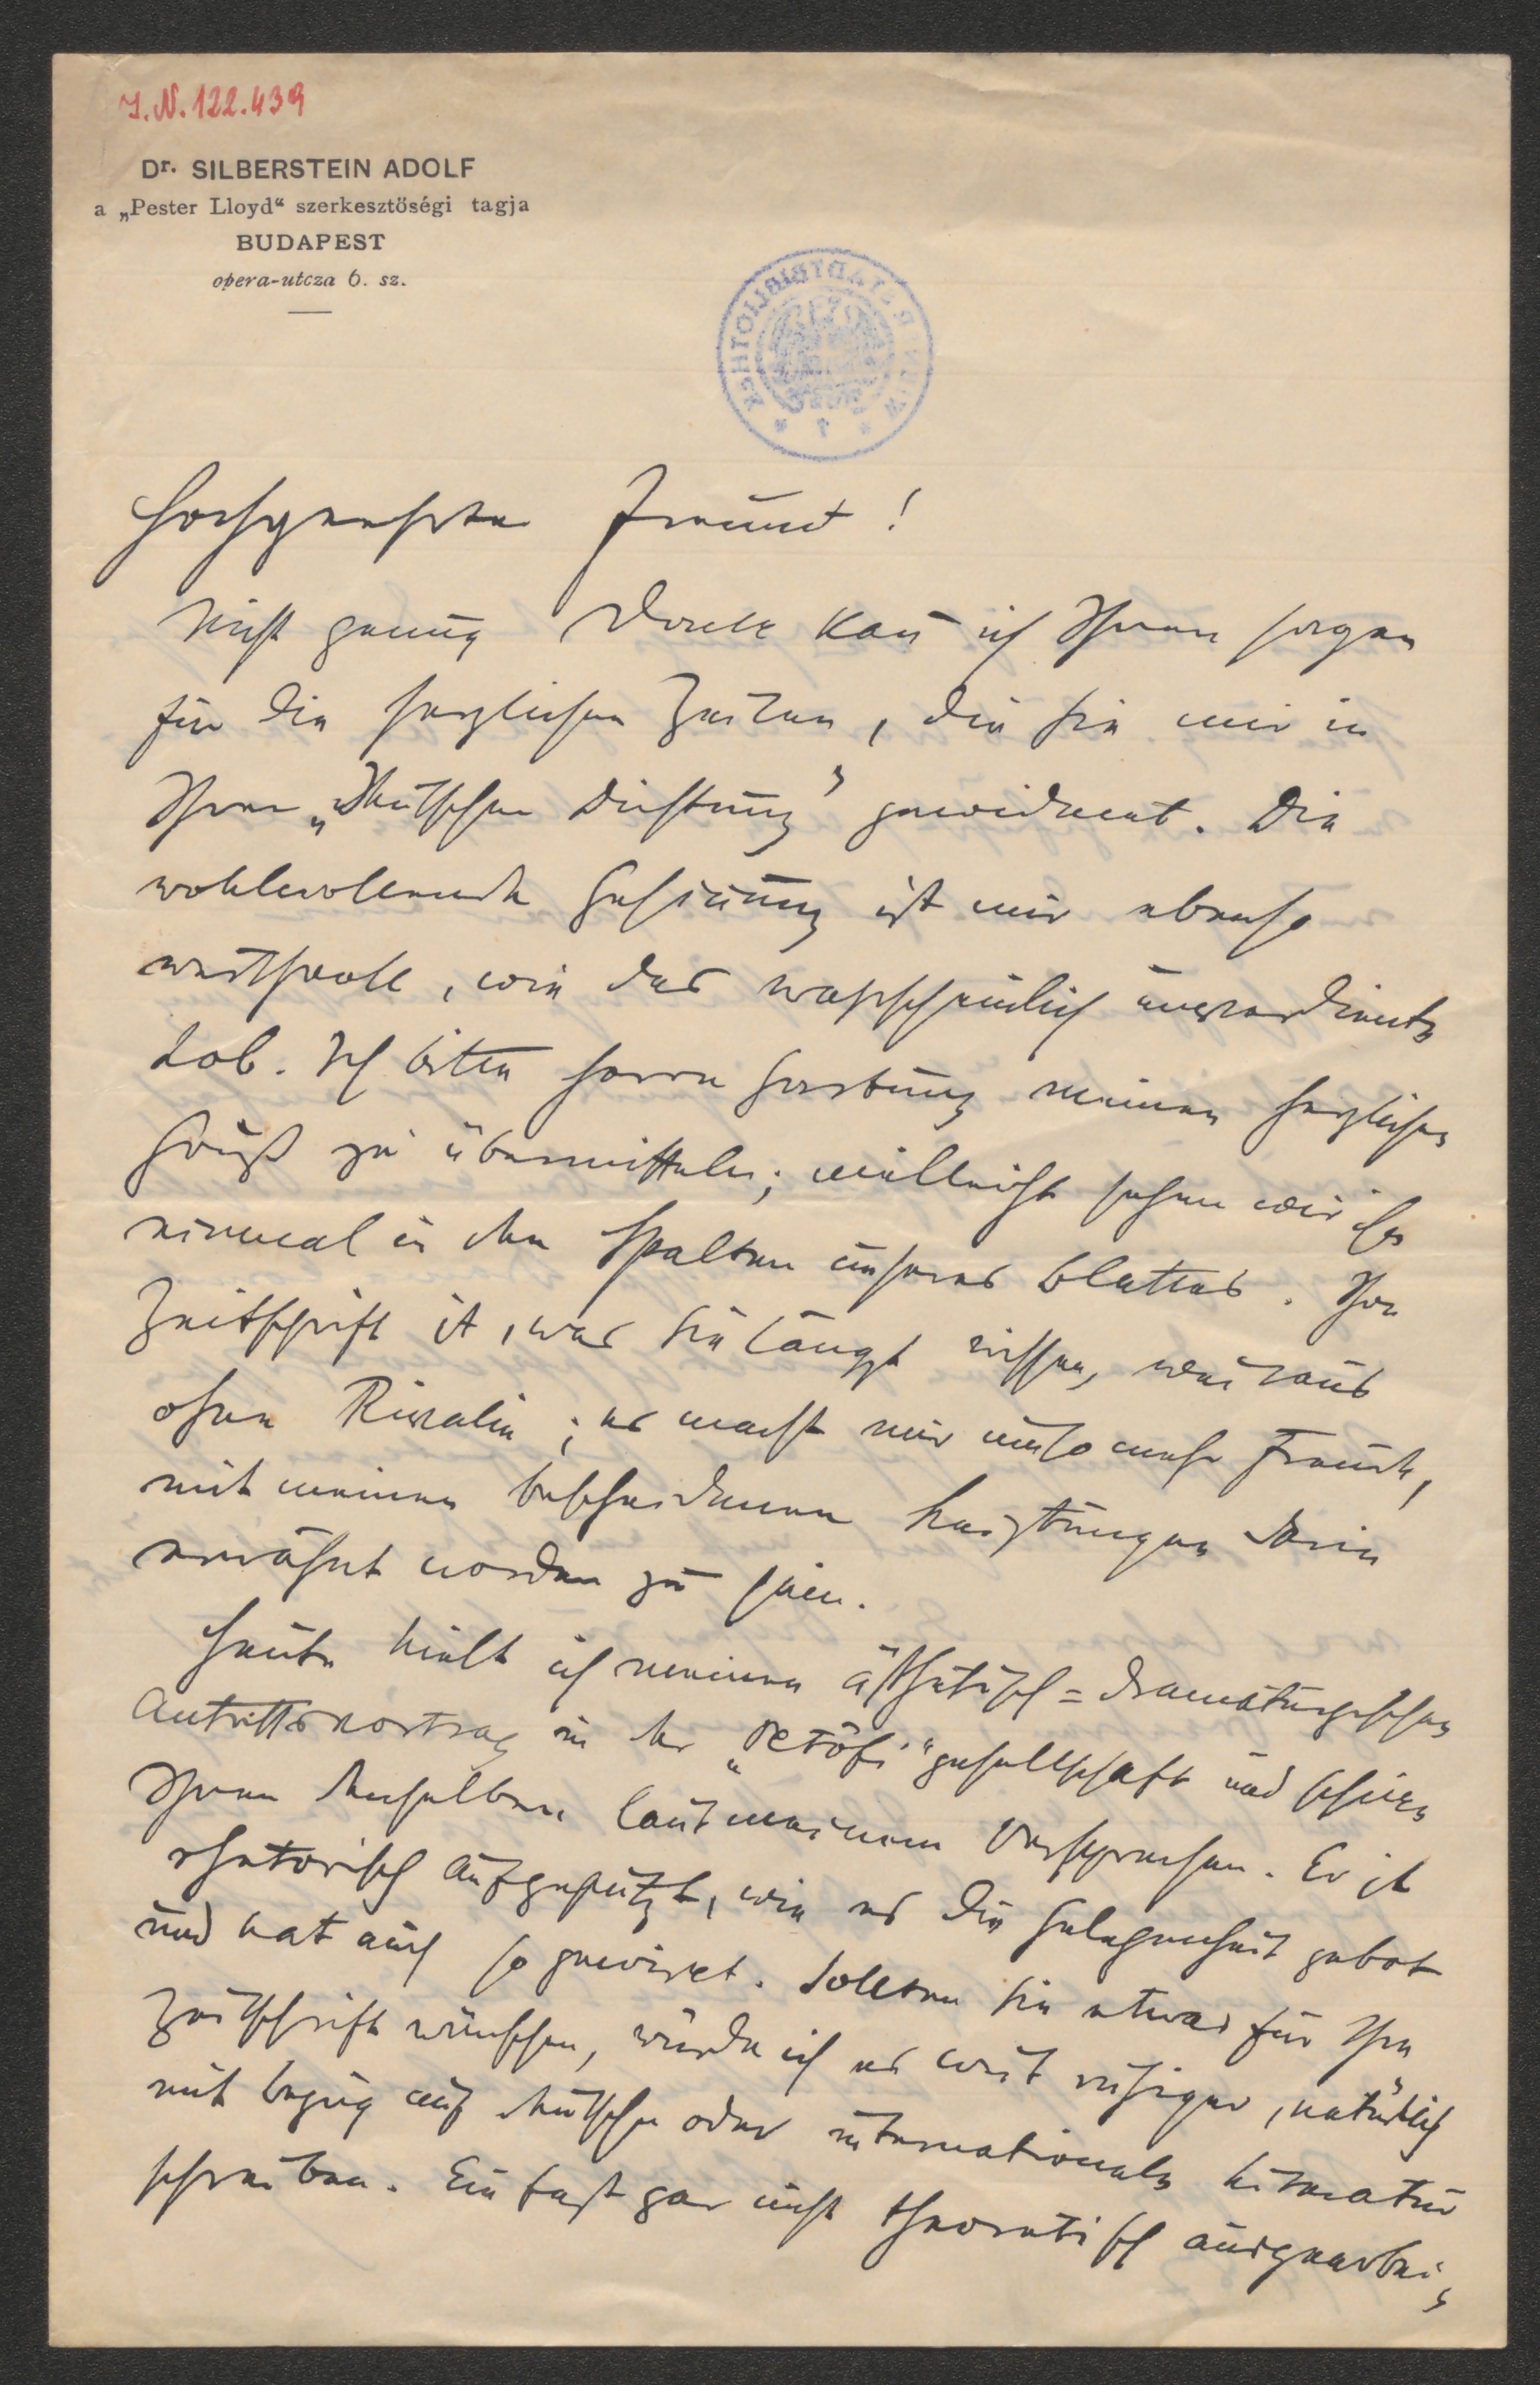 I.N. 122.439
Dr. SILBERSTEIN ADOLF
a „Pester Lloyd“ szerkesztöségi tagja
BUDAPEST
opera-utcza 6. sz.
Hochgeehrter Freund!
Nicht genug Dank kann ich Ihnen sagen
für die herzlichen Zeilen, die Sie mir in
Ihrer „Deutschen Dichtung" gewidmet. Die
wohlwollende Gesinnung ist mir ebenso
werthvoll, wie das wahrscheinlich unverdiente
Lob. Ich bitte Herrn meinen herzlichen
Gruß zu übermitteln; vielleicht sehen wir ihn
einmal in den Spalten unseres Blattes. Ihre
Zeitschrift ist, was Sie längst wissen, weitaus
ohne Rivalin; es macht mir umso mehr Freude,
mit meinen bescheidenen Leistungen darin
erwähnt worden zu sein.
Heute hielt ich meinen ästhetisch=dramaturgischen
Antrittsvortrag in der „Petöfi"gesellschaft und schicke
Ihnen denselben laut meinem Versprechen. Er ist
rhetorisch aufgeputzt, wie es die Gelegenheit gebot
und hat auch so gewirkt. Sollten Sie etwas für Ihre
Zeitschrift wünschen, würde ich es weit ruhiger, natürlich
mit Bezug auf deutsche oder internationale Literatur
schreiben. Ein fast gar nicht theoretisch ausgearbei-